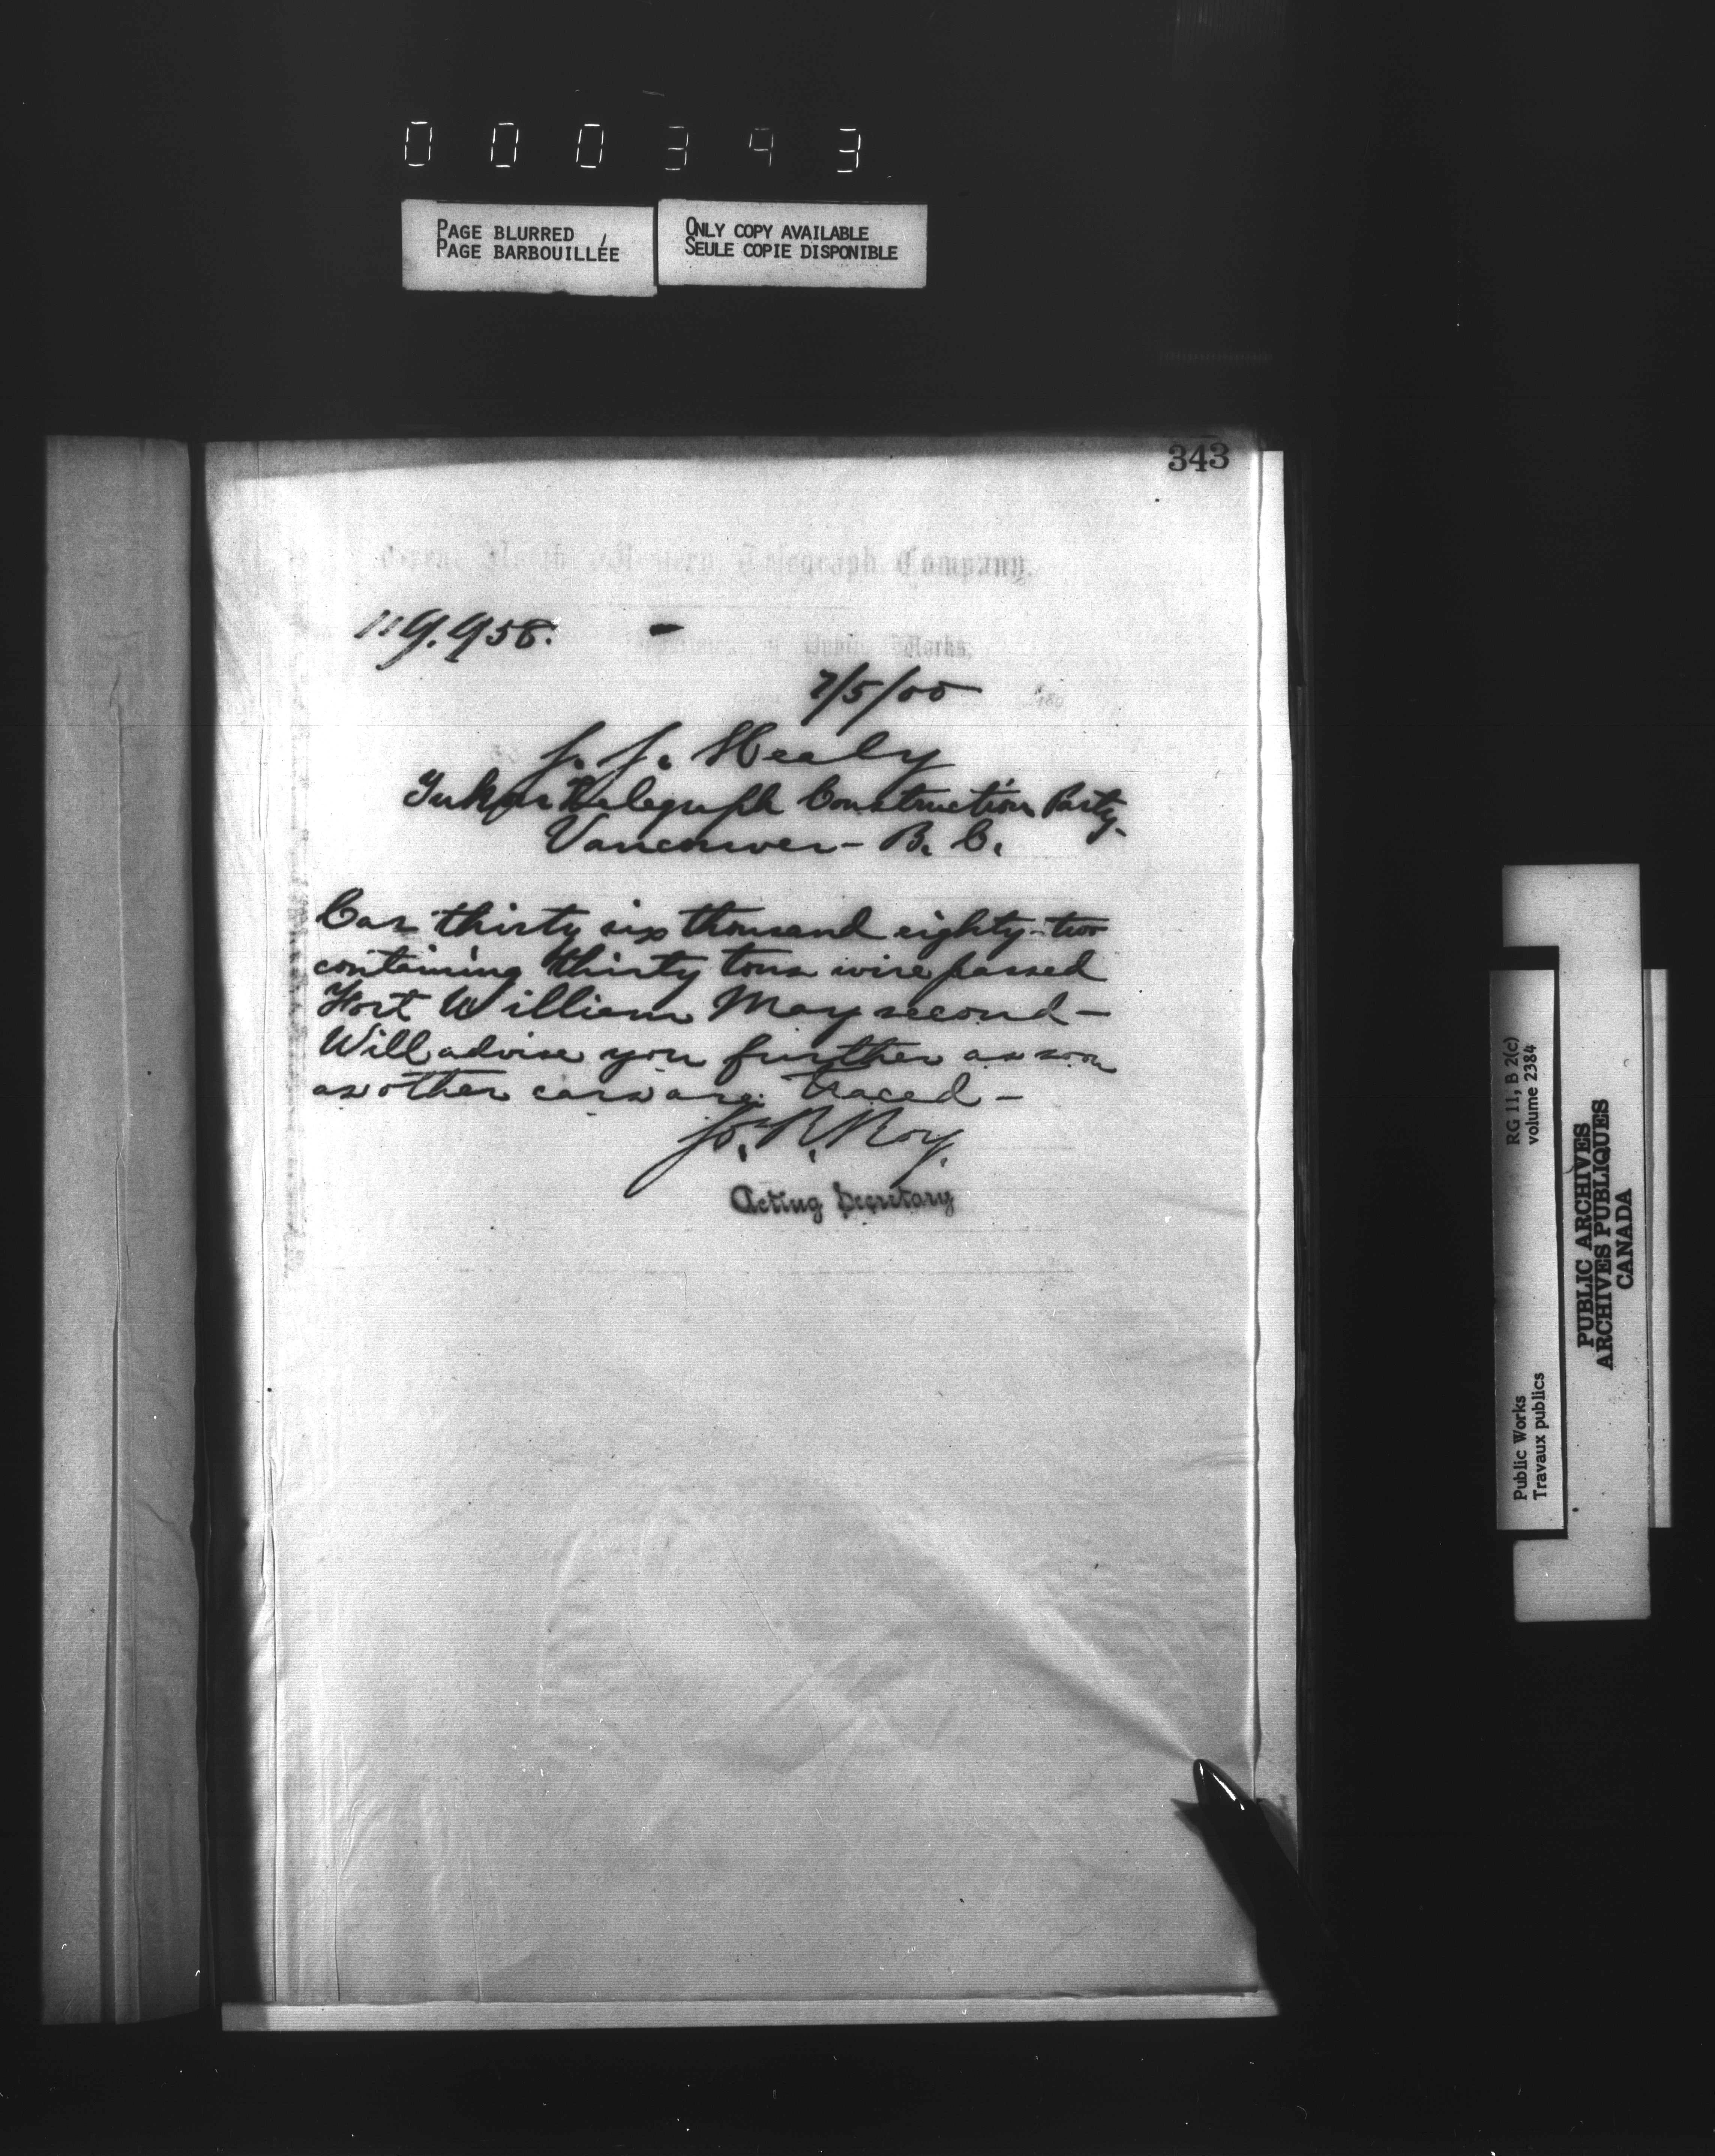 000393
PAGE BLURRED
PAGE BARBOUILLÉE
ONLY COPY AVAILABLE
SEULE COPIE DISPONIBLE
343
Great North Western Telegraph Company.
119.958.
Department of Public Works,
7/5/00
J. J. Healy
Yukon Telegraph Construction Party.
Vancouver - B. C.
Car thirty six thousand eighty-two
containing thirty tons wire passed
Fort William May second -
Will advise you further as soon
as other cars are traced -
Jo. R. Roy.
Acting Secretary
RG 11, B 2(c)
volume 2384
Public Works
Travaux publics
PUBLIC ARCHIVES
ARCHIVES PUBLIQUES
CANADA